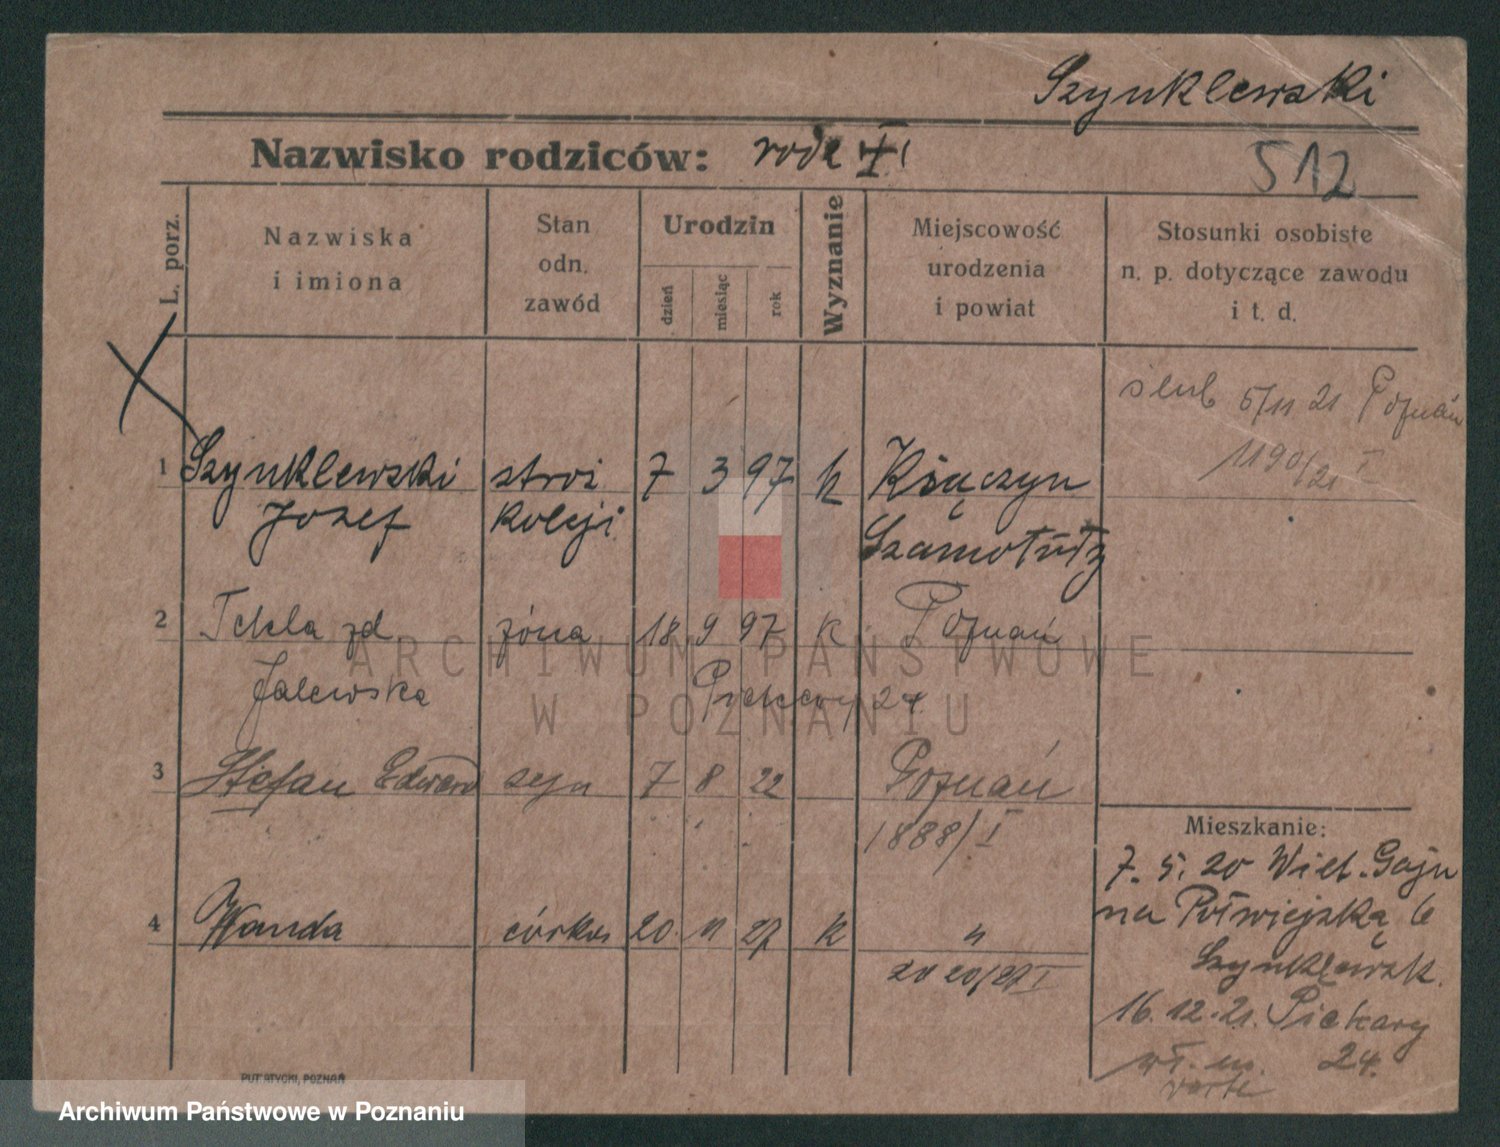 Szynklewski
Nazwisko rodziców:
512
L. porz.
Nazwiska
i imiona
Stan
odn.
zawód
Urodzin
dzień
miesiąc
rok
Wyznanie
Miejscowość
urodzenia
i powiat
Stosunki osobiste
n. p. dotyczące zawodu
i t. d.
ślub 5/11 21 Poznań
1190/21 I
1 Szynklewski stroż 7 3 97 k Książyn
Józef koleji Szamotuły
2 Tekla zd żona 18 9 97 k Poznań
Jalewska Piekary 24
3 Stefan Edward syn 7 8 22 Poznań
1888/I
4 Wanda córka 20 11 27 k "
2020/27 I
Mieszkanie:
7. 5. 20 Wiel. Gaju
na Półwiejską 6
Szynklewsk.
16.12.21. Piekary
24.
PUTIATYCKI, POZNAŃ
ARCHIWUM PAŃSTWOWE
W POZNANIU
Archiwum Państwowe w Poznaniu